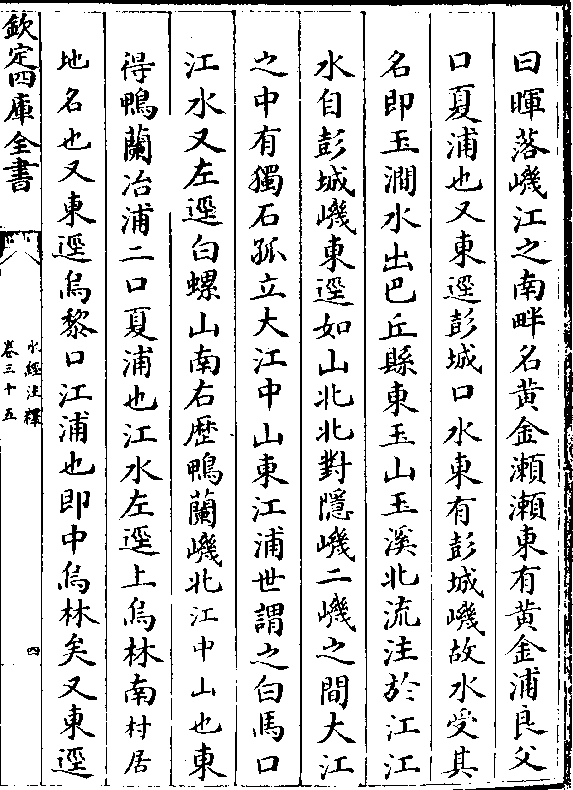 曰暉落𡺸江之南畔名黄金瀬瀬東有黄金浦良父
口夏浦也又東逕彭城口水東有彭城磯故水受其
名即玉澗水出巴丘縣東玉山玉溪北流注於江江
水自彭城磯東逕如山北北對隱磯二磯之間大江
之中有獨石孤立大江中山東江浦世謂之白馬口
江水又左逕白螺山南右歴鴨蘭磯北江中山也東
得鴨蘭冶浦二口夏浦也江水左逕上烏林南村居
地名也又東逕烏黎口江浦也即中烏林矣又東逕
欽定四庫全書
水經注釋
卷三十五
四